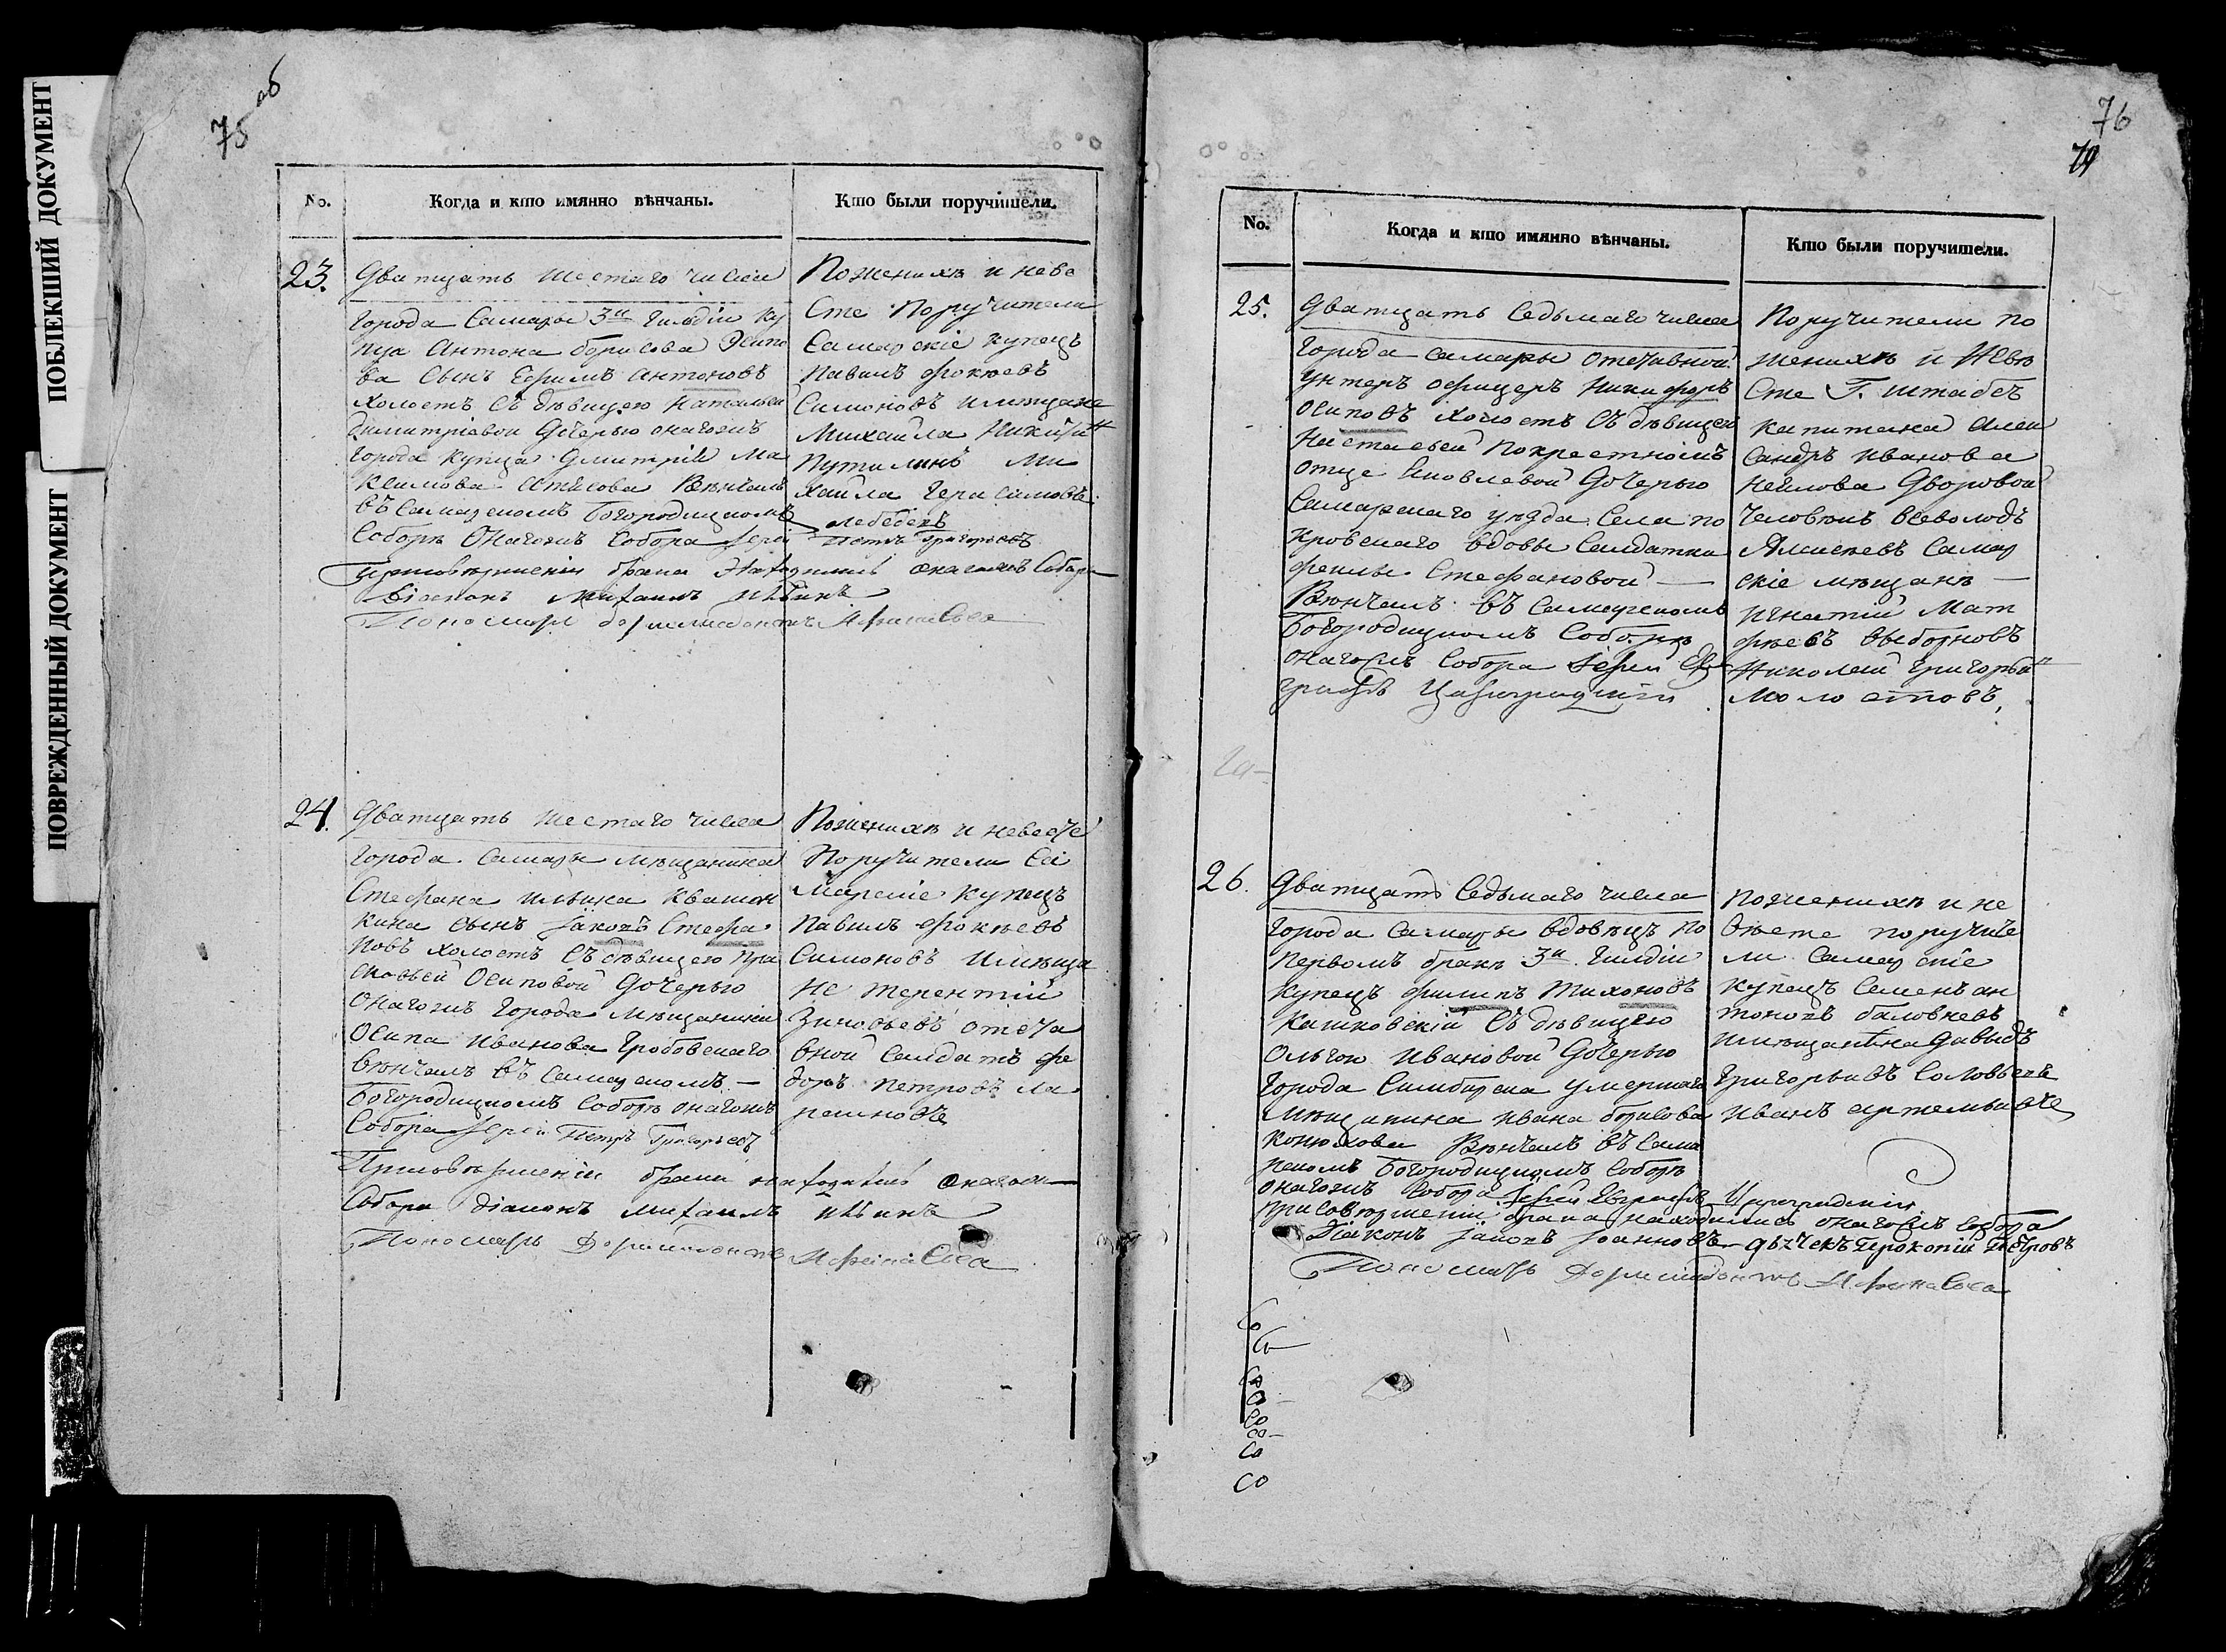 ПОБЛЕКШИЙ ДОКУМЕНТ
ПОВРЕЖДЕННЫЙ ДОКУМЕНТ
75 об
No.
Когда и кто имянно вѣнчаны.
Кто были поручители.
23.
Дватцать шестаго числа
города Самары 3й гильдіи ку
пца Антона борисова
ва сынъ Ефимъ антоновъ
холостъ съ дѣвицею Натальеи
димитріевои дочерью онагожъ
города купца Дмитрія Ма
ксимова Вѣнчалъ
въ Самарскомъ богородицкомъ
Соборѣ Онагожъ Собора Іерей
Петръ Григорьевъ
присовершеніи брака находились онагожъ Собора
діаконъ Михаилъ
Пономарь дормидонтъ
Пожениxѣ и неве
сте Поручители
Самарскіе купецъ
Павилъ фокѣевъ
Симоновъ имѣщане
Михайла Никити
Путилинъ Ми
хайла герасимовъ
лебедевъ
24.
Дватцать шестаго числа
города Самары мѣщанина
Стефана ильина квашон
кина сынъ Іаковъ Стефа
новъ холостъ съ дѣвицею пра
сковьей Осиповой дочерью
онагожъ города мѣщанина
Осипа иванова гробовскаго
вѣнчалъ въ Самарскомъ —
богородицкомъ Соборѣ онагожъ
Собора Іерей Петръ Григорьевъ
Присовершеніи брака находились онагожъ
Собора діаконъ Михаилъ
Пономарь Дормидонтъ
Поженихѣ и невесте
Поручители Са
марскіе купецъ
Павилъ фокѣевъ
Симоновъ имѣща
не терентій
Зиновьевъ отста
вной Салдатъ фе
доръ петровъ ла
76
79
No.
Когда и кто имянно вѣнчаны.
Кто были поручители.
25.
Дватцать Седьмаго числа
города Самары отставной
унтеръ офицеръ Никифоръ
осиповъ холостъ съ дѣвицею
Настасьей покрестномъ
отце Яковлевой дочерью
Самарскаго уѣзда Села по
кровскаго вдовы Салдатки
феклы Стефановой —
Вѣнчалъ въ Самарскомъ
богородицкомъ Соборѣ
онагожъ Собора Іерей Ев
графъ Цареградскій
Поручители по
женихѣ и Невѣ
сте Г. штабсъ
капитана Алек
сандръ иванова
Нейлова Дворовой
человѣкъ всеволодъ
Алексѣевъ Самар
скіе мѣщанѣ —
игнатій Мат
фѣевъ выборновъ
Николай григорьи
Молостовъ,
26.
Дватцать Седьмаго числа
города Самары вдовецъ по
первомъ бракѣ 3й гильдіи
купецъ филипъ Тихоновъ
Кашковскій съ дѣвицею
Ольгою Ивановой дочерью
города Симбирска умершаго
мѣщанина ивана борисова
конюхова Вѣнчалъ въ Сама
рскомъ богородицкомъ Соборѣ
онагожъ Собора Іерей Евграфъ Цареградскій
присовершеніи брака находились онагожъ Собора
Діаконъ Іаковъ Іоанновъ дьячекъ Прокопій Петровъ
Пономарь Дормидонтъ
поженихѣ и не
вѣсте поручите
ли Самарскіе
купецъ Семенъ ан
тоновъ баловневъ
имѣщанѣна давыдъ
григорьивъ Соловьевъ
иванъ артемьивъ
Со
Со
Со
Со
Со
Со
Со